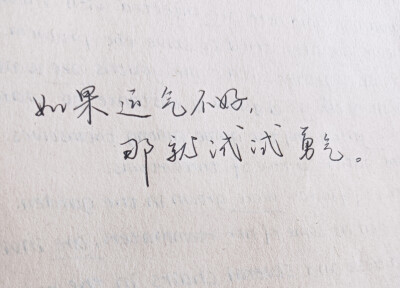 如果运气不好,
那就试试勇气。